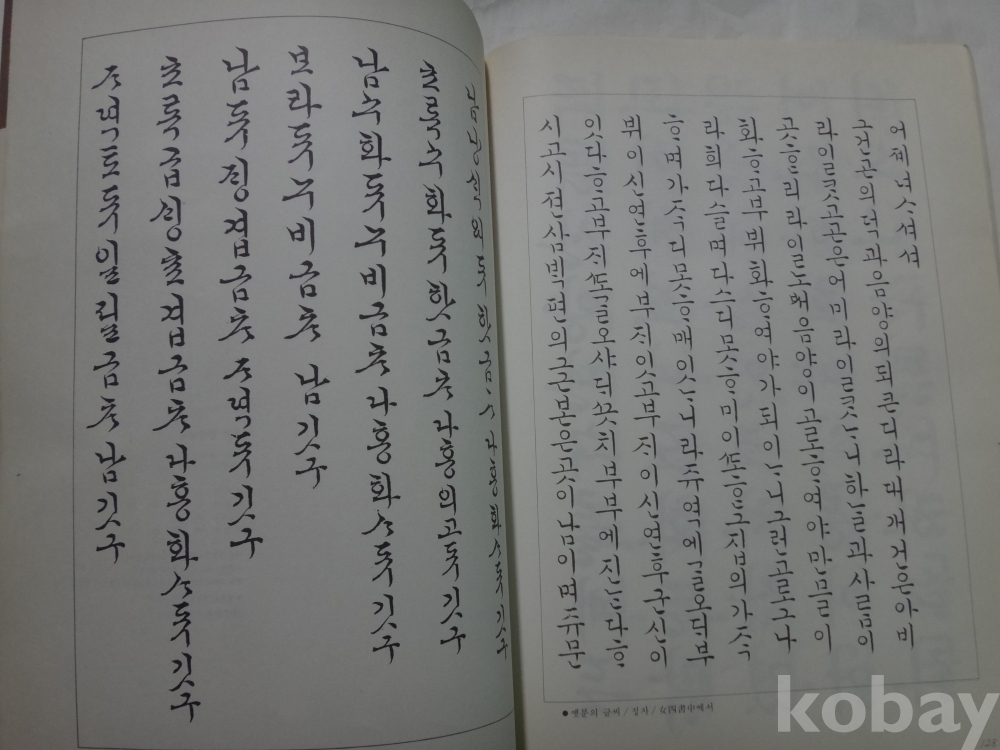 어제녀ᄉᆞ셔셔
건곤의덕과음양의되큰디라대개건은아비
라일ᄏᆞᆺ고곤은어미라일ᄏᆞᆺᄂᆞ니하ᄂᆞᆯ과사ᄅᆞᆷ이
ᄀᆞᆺᄒᆞ리라일로ᄡᅥ음양이고로ᄒᆞ여야만믈이
화ᄒᆞ고부뷔화ᄒᆞ여야가되이ᄂᆞ니그런고로그나
라희다ᄉᆞᆯ며다ᄉᆞ디못ᄒᆞ미이ᄯᅩᄒᆞᆫ그집의가ᄌᆞᆨ
ᄒᆞ며가ᄌᆞᆨ디못ᄒᆞ매이ᄉᆞ니라쥬역에ᄀᆞᆯ오ᄃᆡ부
뷔이신연후에부ᄌᆡ잇고부ᄌᆡ이신연후군신이
잇다ᄒᆞ고부ᄌᆡᄯᅩᄀᆞᆯ오샤ᄃᆡ긋치부부에진ᄂᆞᆫ다ᄒᆞ
시고시젼삼ᄇᆡᆨ편의그근본은곳이남이며쥬문
● 옛분의 글씨/정자/女四書中에서
깃구
초록수화듀핫금 다홍의고듀깃구
남수화듀누비금 다홍화ᄉᆞ듀깃구
보라듀누비금 남깃구
남듀졍겹금 ᄌᆞ덕듀깃구
초록금션초겹금 다홍화ᄉᆞ듀깃구
ᄌᆞ덕토듀일월금 남깃구
kobay